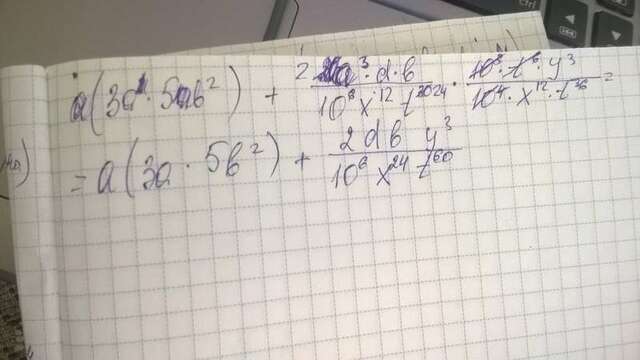 a(3a · 5ab²) + a³·d·b / 10⁶x¹²t · t⁶·y³ / 10⁴·x¹²·t³⁶ =
= a(3a · 5b²) + 2db y³ / 10⁶ x²⁴ t⁶⁰